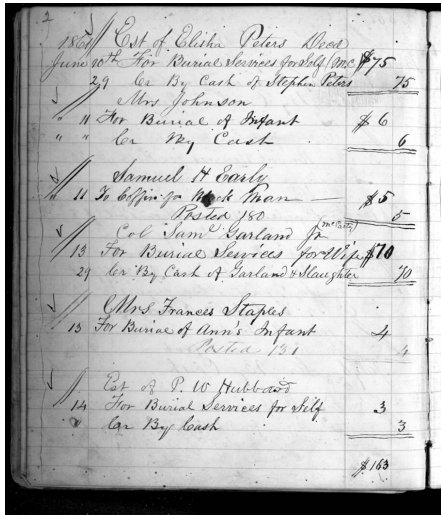 2
1861 Est of Elisha Peters Decd
June 10th For Burial Services for Self (M.C. $75
29 Cr By Cash of Stephen Peters 75
Mrs Johnson
" 11 For Burial of Infant $6
" " Cr By Cash 6
Samuel H Early
" 11 To Coffin for Man $5
Posted 150 5
Col Saml Garland Jr
13 For Burial Services for Wife $70
29 Cr By Cash of Garland & Slaughter 70
Mrs Frances Staples
13 For Burial of Ann's Infant 4
Posted 4
Est of P. W Hubbard
14 For Burial Services for Self 3
" Cr By Cash 3
$163